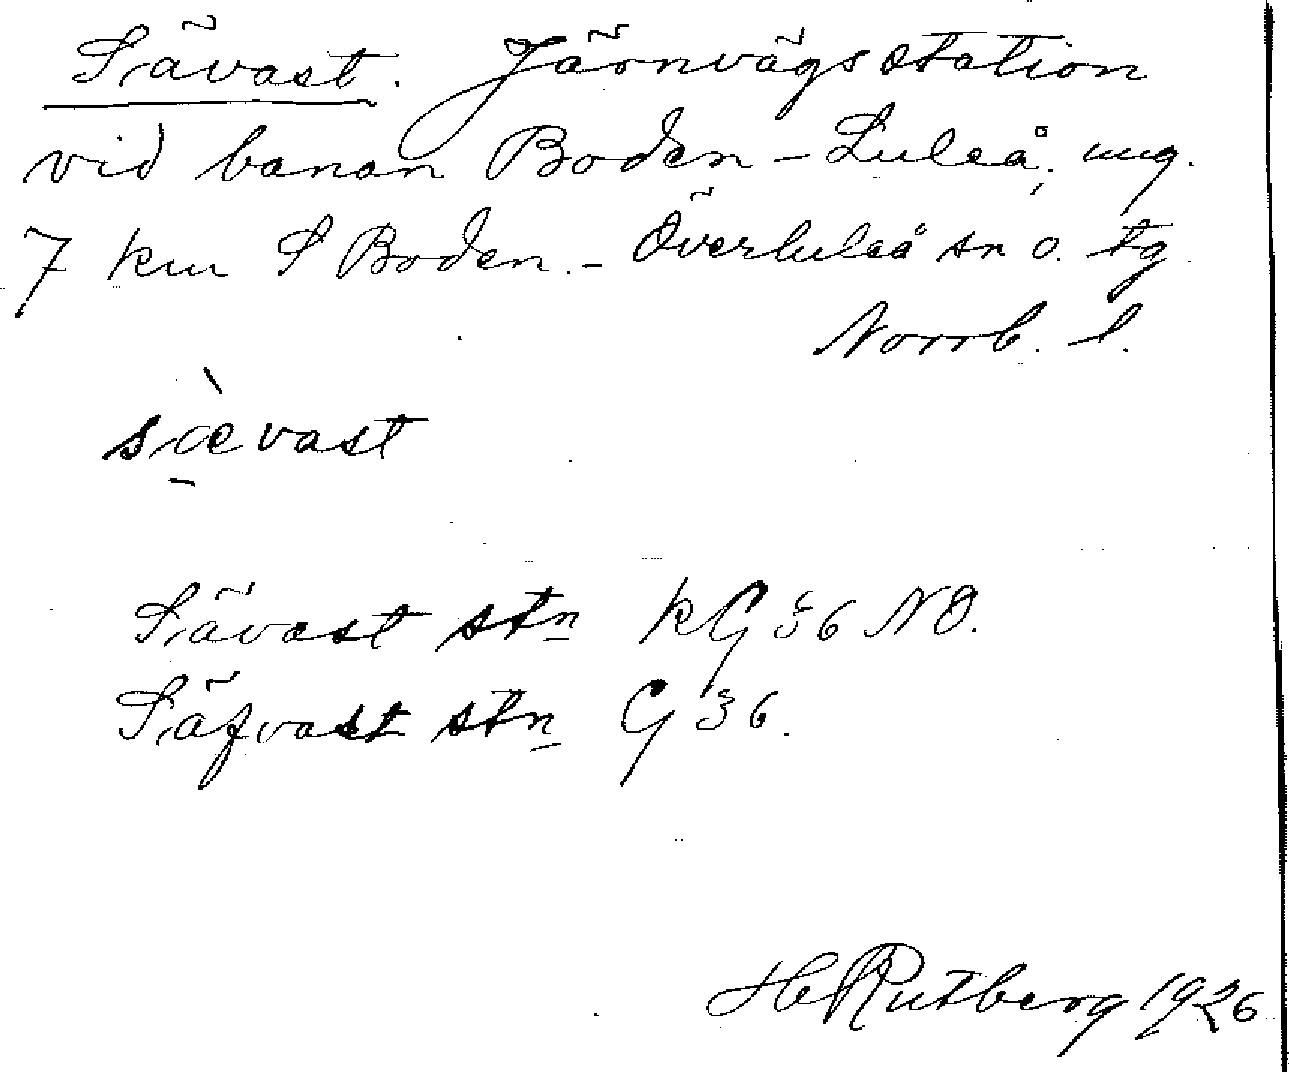 Sävast. Järnvägsstation
vid banan Boden – Luleå, ung.
7 km S Boden. – Överluleå sn o. tg
Norrb. l.
sæ̀vast
Sävast stn kG 36 NO.
Säfvast stn G 36.
H Rutberg 1926